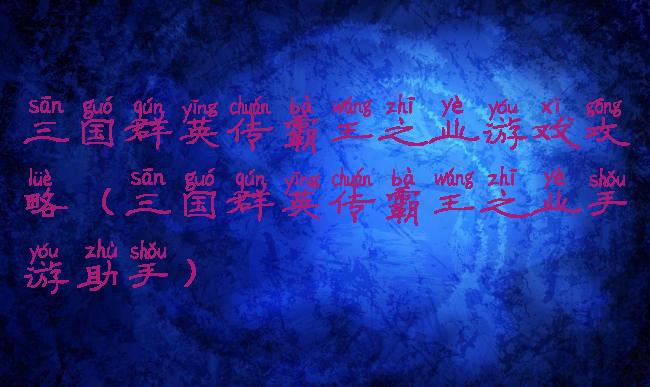 sān guó qún yīng chuán bà wáng zhī yè yóu xì gōng
三国群英传霸王之业游戏攻
lüè sān guó qún yīng chuán bà wáng zhī yè shǒu
略（三国群英传霸王之业手
yóu zhù shǒu
游助手）